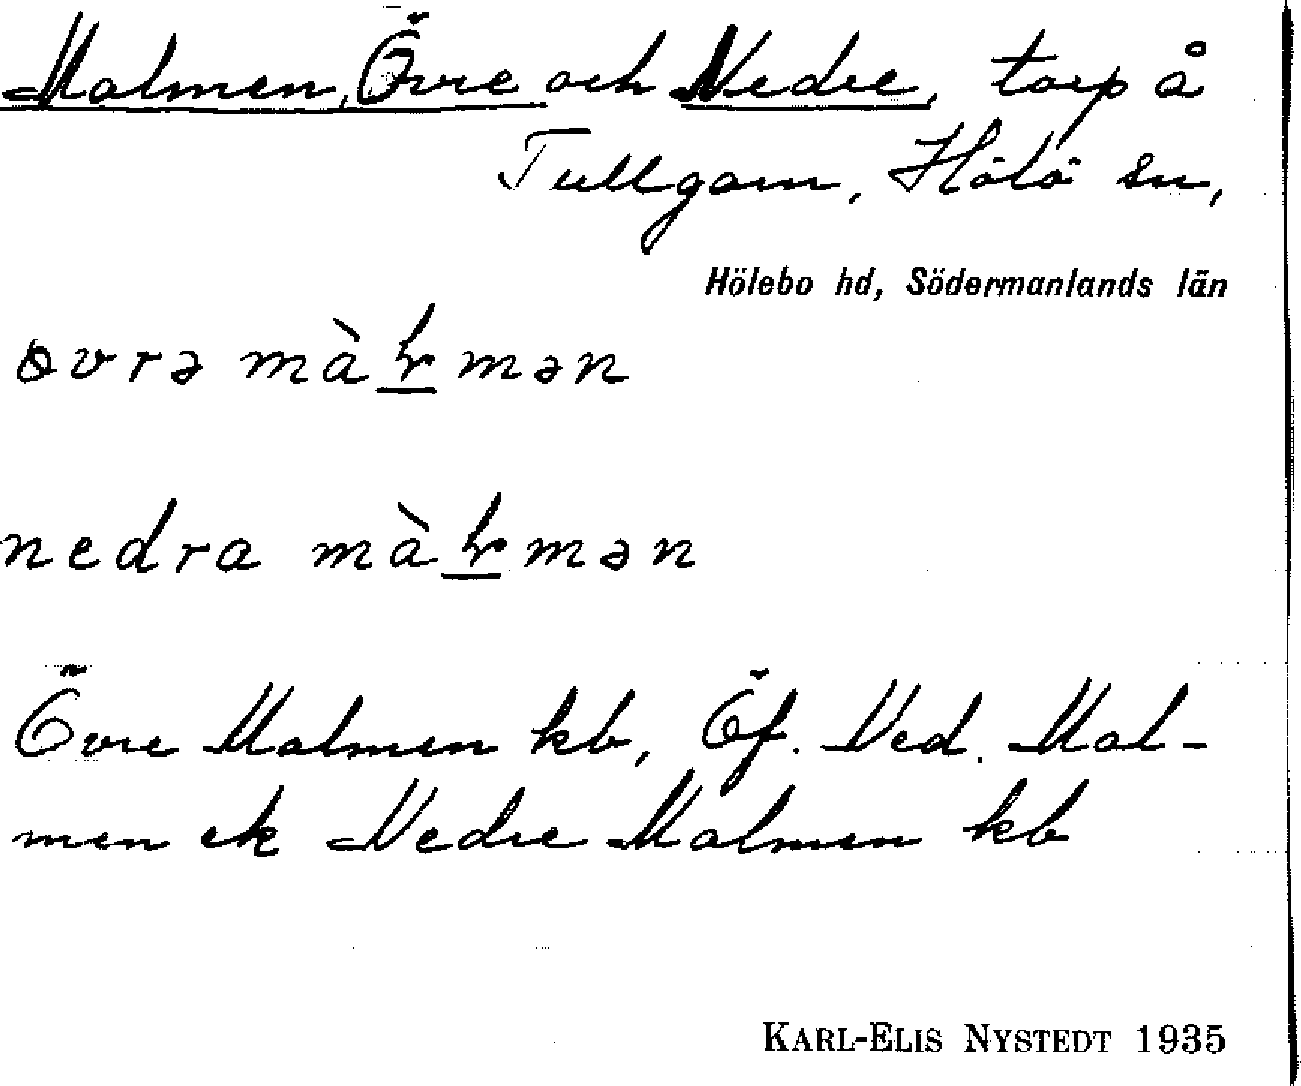 Malmen, Övre och Nedre, torp å
Tullgarn, Hölö sn,
Hölebo hd, Södermanlands län
övre Malmen kb, Öf. Ned. Mal-
men ek Nedre Malmen kb
KARL-ELIS NYSTEDT 1935